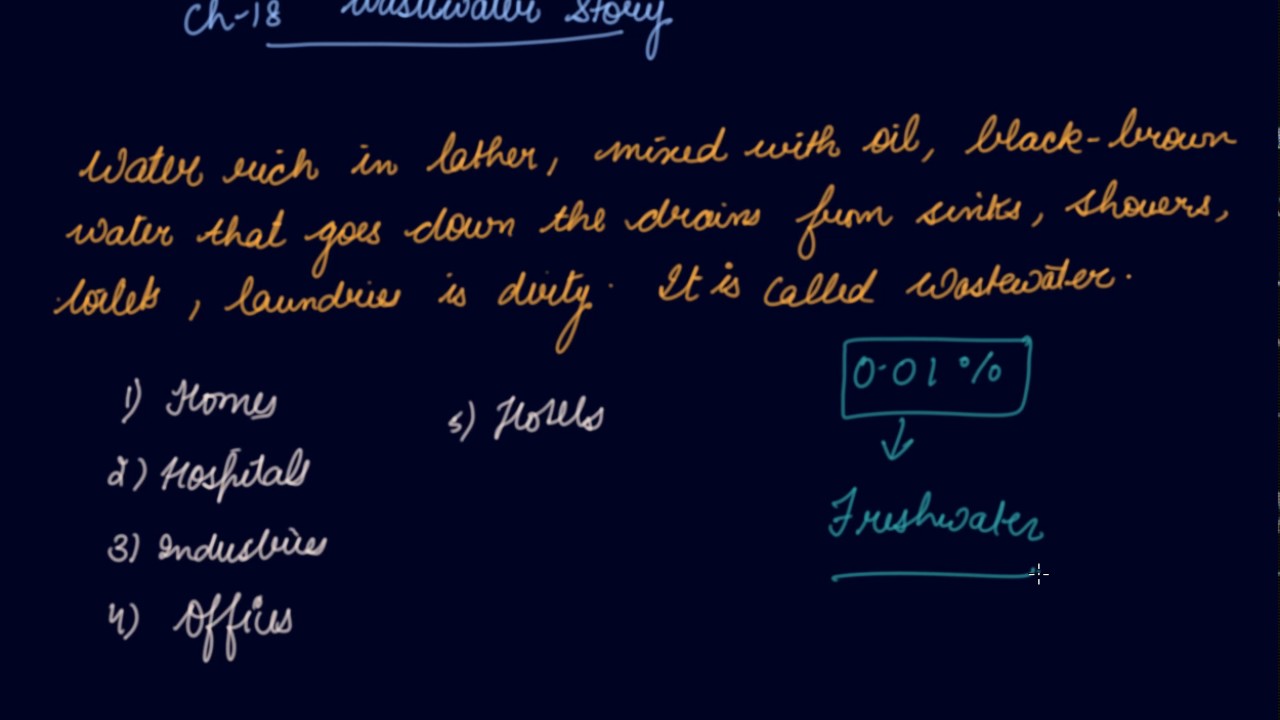 Ch-18 Wastewater Story
Water rich in lather, mixed with oil, black-brown
water that goes down the drains from sinks, showers,
toilets, laundries is dirty. It is called Wastewater.
1) Homes
2) Hospitals
3) Industries
4) Offices
5) Hotels
0.01 %
Freshwater